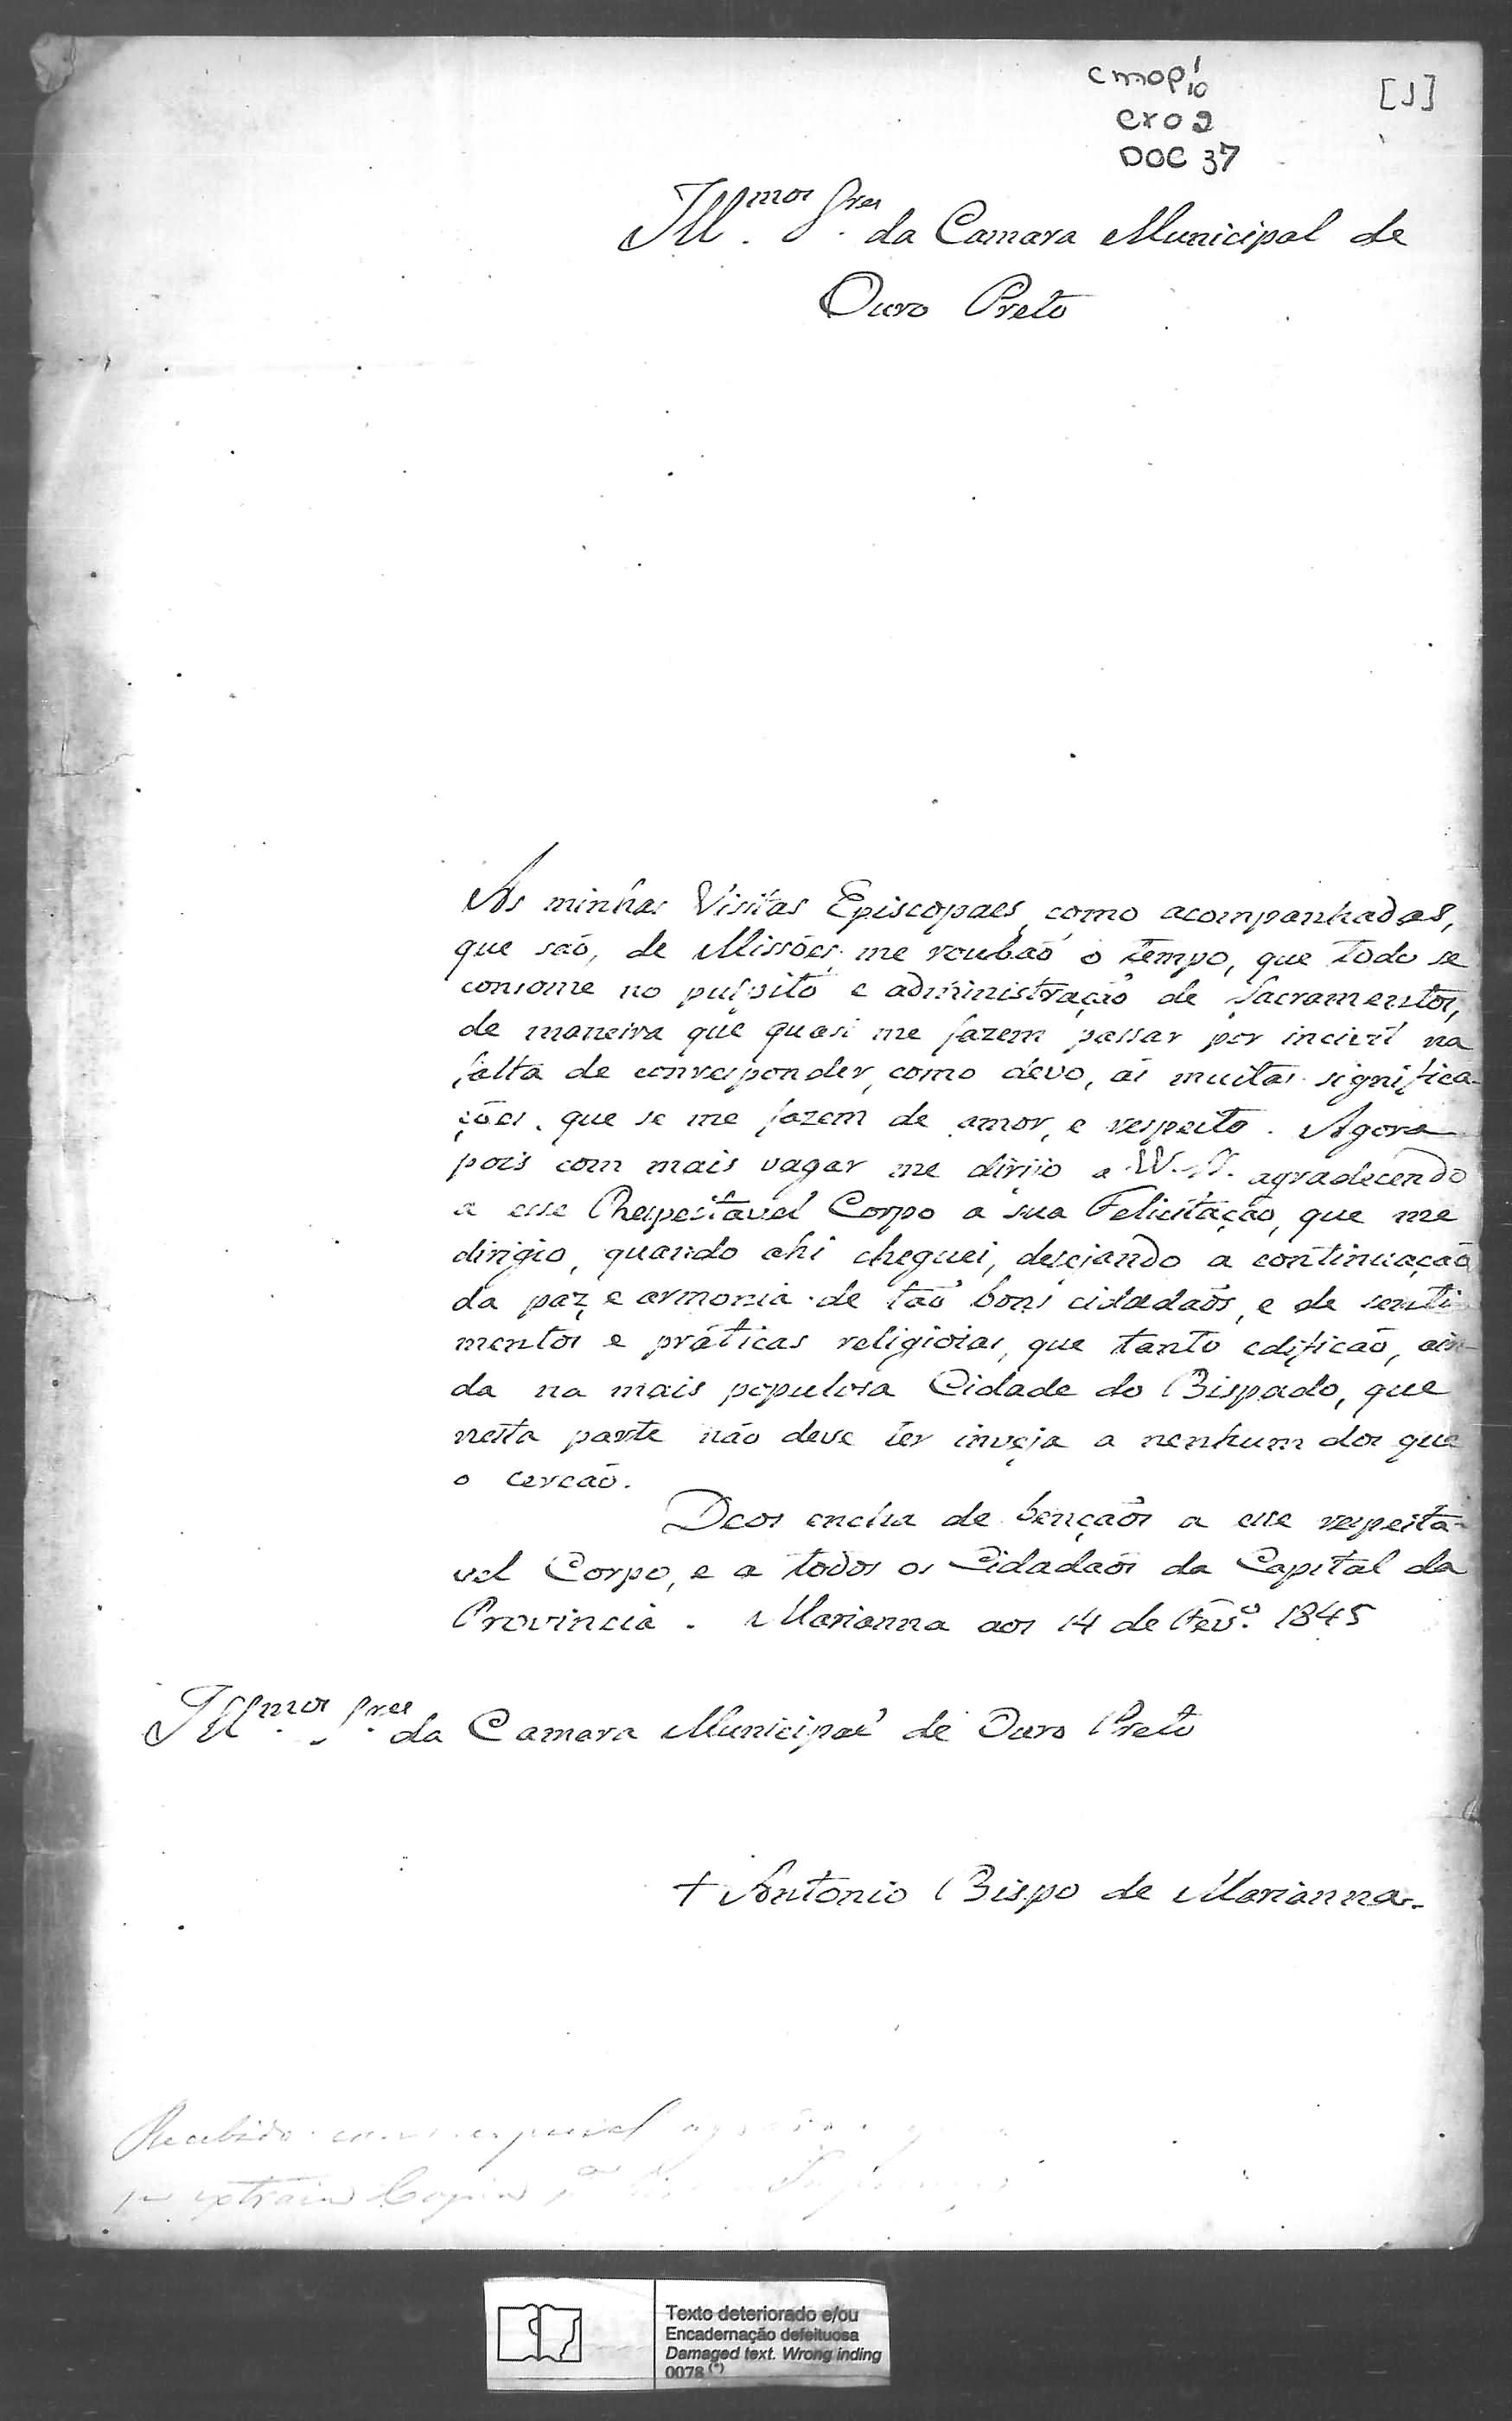 cmop 1/10
cx 02
DOC 37
[1]
Ill.mos Sres. da Camara Municipal de
Ouro Preto
As minhas Visitas Episcopaes, como acompanhadas,
que são, de Missões, me roubaõ o tempo, que todo se
consome no pulpito e administração de Sacramentos,
de maneira que quasi me fazem passar por incivil na
falta de corresponder, como devo, ás muitas significa-
ções, que se me fazem de amor, e respeito. Agora
pois com mais vagar me dirijo a VV. SS. agradecendo
a esse Respeitavel Corpo a sua Felicitação, que me
dirigio, quando ahi cheguei, desejando a continuação
da paz e armonia de taõ bons cidadaõs, e de senti-
mentos e práticas religiosas, que tanto edificaõ, ain-
da na mais populosa Cidade do Bispado, que
nesta parte não deve ter inveja a nenhum dos que
o cercaõ.
Deos encha de bençaõs a esse respeita-
vel Corpo, e a todos os Cidadaõs da Capital da
Provincia. Marianna aos 14 de Fev.o 1845
Ill.mos Sres. da Camara Municipal de Ouro Preto
+ Antonio Bispo de Marianna.
Recebido especial
extrair Copia
Texto deteriorado e/ou
Encadernação defeituosa
Damaged text. Wrong inding
0078 (*)